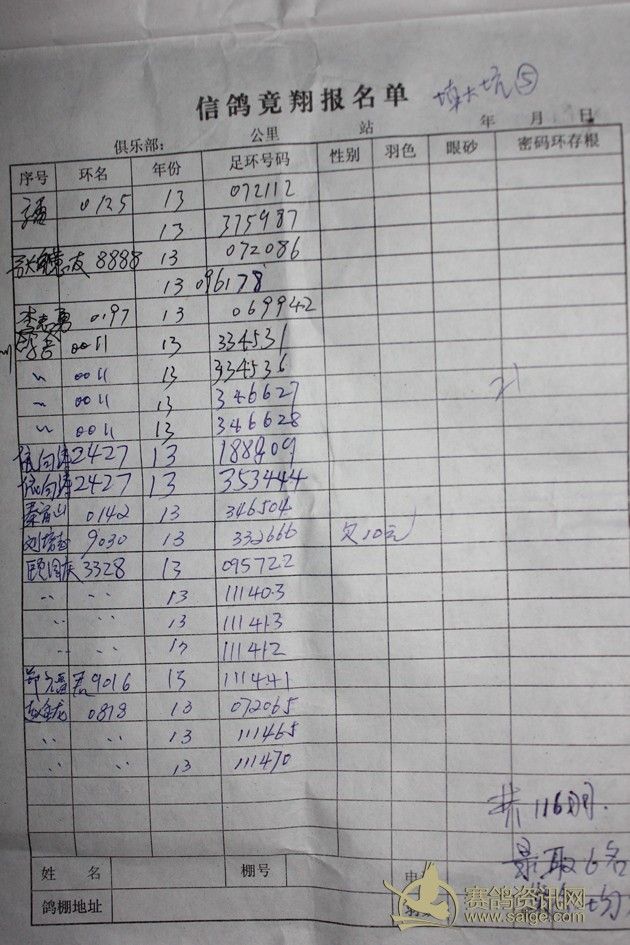 信鸽竞翔报名单 填大坑⑤
俱乐部： 公里 站 年 月 日
序号 环名 年份 足环号码 性别 羽色 眼砂 密码环存根
0125 13 072112
13 375987
8888 13 072086
13 096178
李志勇 0197 13 069942
0011 13 334531
〃 0011 13 334536
〃 0011 13 346627
〃 0011 13 346628
2427 13 188909
2427 13 353444
0142 13 346504
9030 13 332666 欠10元
顾国庆 3328 13 095722
〃 〃 13 111403
〃 〃 13 111413
〃 〃 13 111412
9016 13 111441
0818 13 072065
〃 〃 13 111465
〃 〃 13 111470
21
共116羽.
录取6名
均
姓 名 棚号
鸽棚地址
赛鸽资讯网
www.saige.com